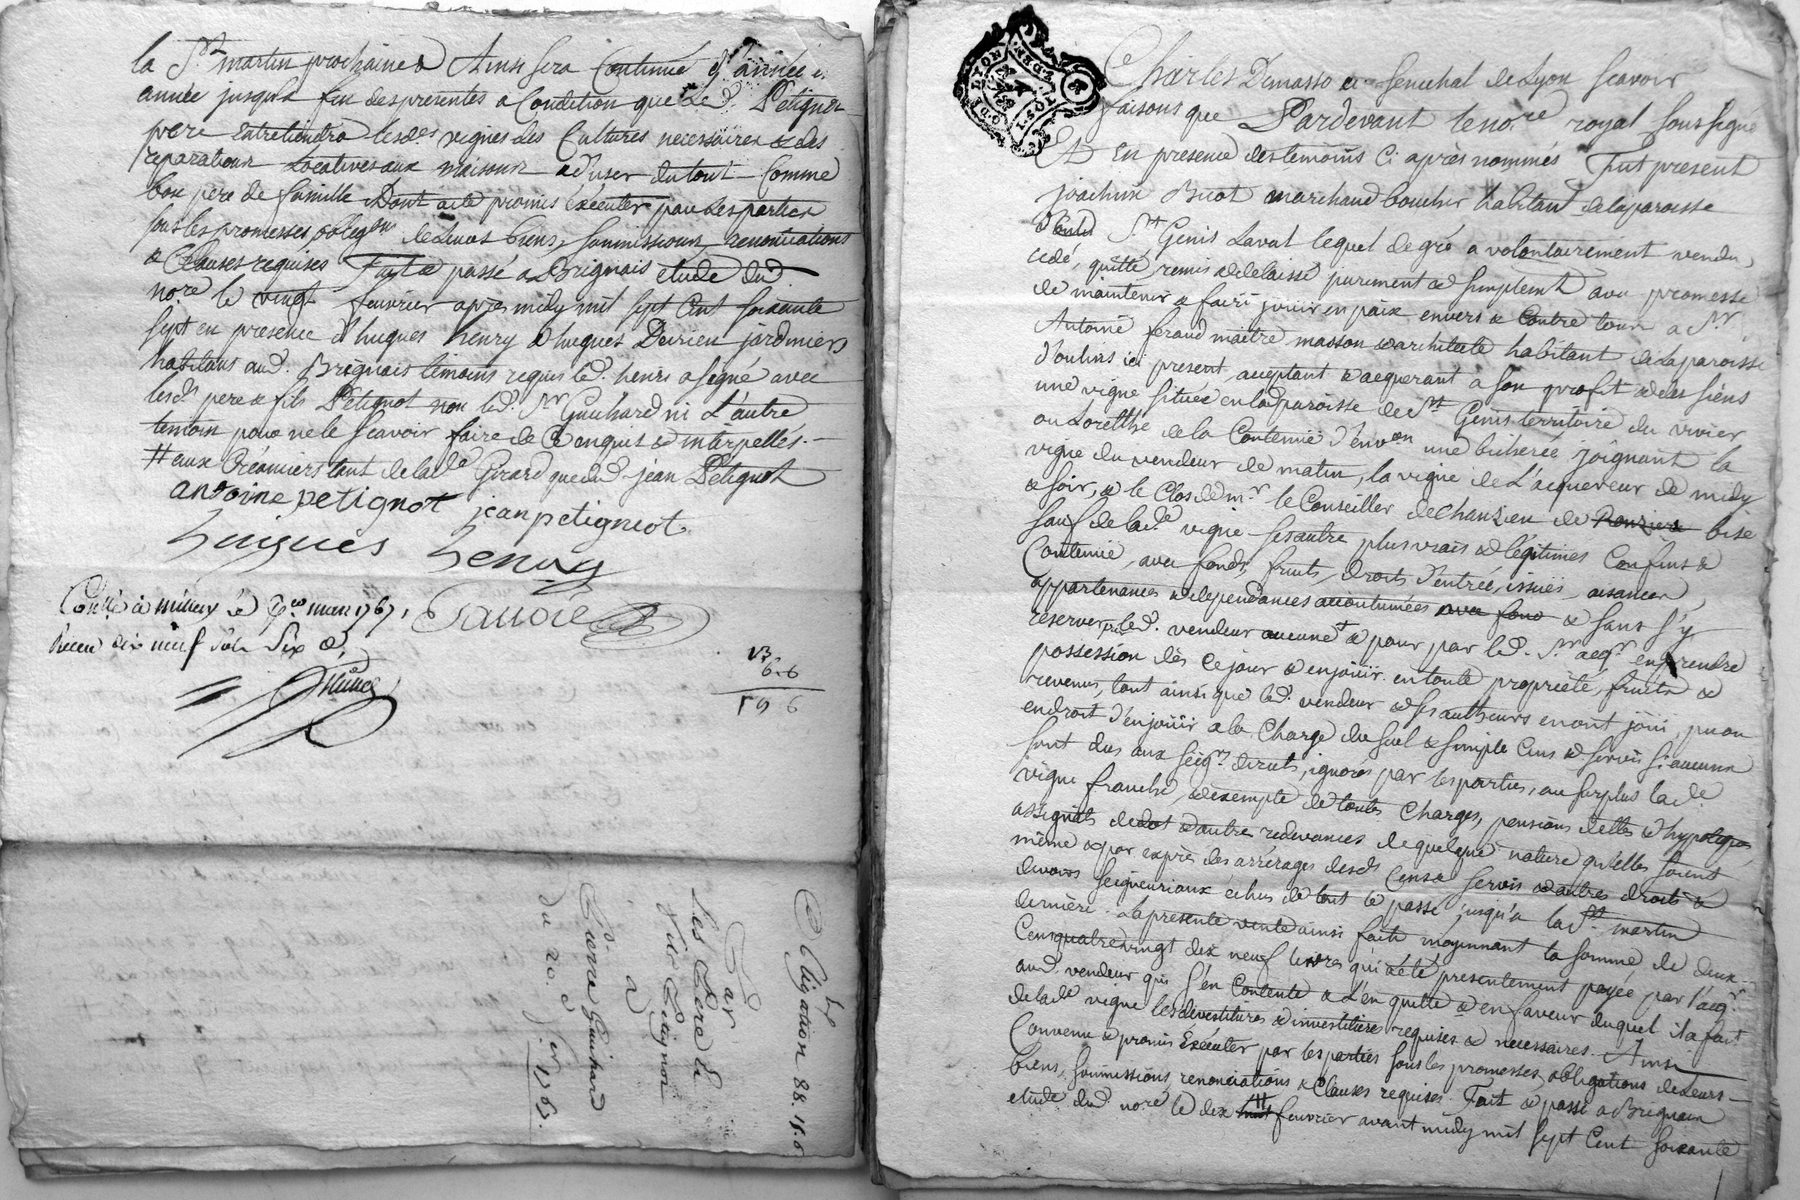 la St martin prochaine & Ainsi sera Continué d'année en
année jusqu'à fin des presentes a Condition que led. Petignot
pere entretiendra lesdes vignes des Cultures necessaires & des
reparations Locatives aux maisons & d'user du tout Comme
bon pere de famille Dont acte promis éxécuter par Les parties
sous les promesses obligons de Leurs biens, soumissions, renonciations
& Clauses requises Fait & passé a Brignais etude dud.
nore le vingt fevrier apres midy mil sept Cent soixante
sept en presence d'hugues henry & hugues Derieu jardiniers
habitans aud. Brignais temoins requis led. henri a signé avec
lesd. pere & fils Petignot non led. Sr Guichard ni L'autre
temoin pour ne le scavoir faire de Ce enquis & interpellés.
# aux Créanciers tant de lade Girard que dud. jean Petignot
antoine petignot jean petigniot
hugues henry
Conllé à millery le mars 1767,
Recu dix neuf sols six d.
13
6.6
19 6
Obligation de 88.15.6
Par
Les Pere &
fils Petignot
à
Pierre Guichard
du 20. fer. 1767.
Charles Demasso senechal de Lyon Scavoir
faisons que Pardevant le nore royal soussigné
Et En presence des temoins Ci après nommés Fut present
joachim Buot marchand boucher habitant de la paroisse
St Genis Laval lequel de gré & volontairement vendu,
cedé, quitté, remis & delaissé purement & simplemt avec promesse
de maintenir & faire jouir en paix envers & Contre tous a Sr
Antoine feraud maitre masson & architecte habitant de La paroisse
d'oulins ici present, acceptant & acquerant a son profit & des siens
une vigne située en lad. paroisse de St Genis territoire du vivier
ou Lorette de la Contenue d'envon une bicherée, joignant la
vigne du vendeur de matin, la vigne de L'acquereur de midy
& soir, & le Clos de mr le Conseiller de chanzieu de bise
sauf de lade vigne ses autre plus vrais & légitimes Confins &
Contenue, avec fonds, fruits, droits d'entrée, issues aisances,
appartenances & dependances accoutumées avec fond & sans s'y
reserver led. vendeur aucune & pour par led. Sr acqr en prendre
possession dès Ce jour & en jouir en toute propriété, fruits &
revenus, tout ainsi que led. vendeur & ses autheurs en ont joüi, pu ou
en droit d'en joüir a la Charge du seul & simple Cens & servis si aucuns
sont dus aux seigrs directs, ignorés par les parties, au surplus lade
vigne franche, & exempte de toutes Charges, pensions dettes & hypoteques
assignats de dot & autre redevances de quelque nature qu'elles soient
même & par exprès des arrérages desds Cens & servis & autres droits &
devoirs seigneuriaux échus de tout le passé jusqu'a la St martin
derniere. La presente vente ainsi faite moyennant la somme de deux
Cens quatre vingt dix neuf livres qui a été presentement payée par l'acqr
aud. vendeur qui s'en Contente & L'en quitte & en faveur duquel il a fait
de lade vigne les devestitures & investitures requises & necessaires. Ainsi
Convenu & promis Exécuter par les parties sous les promesses, obligations de Leurs
biens, soumissions, renonciations & Clauses requises. Fait & passé a Brignais
etude dud. nore le dix huit fevrier avant midy mil sept Cent soixante